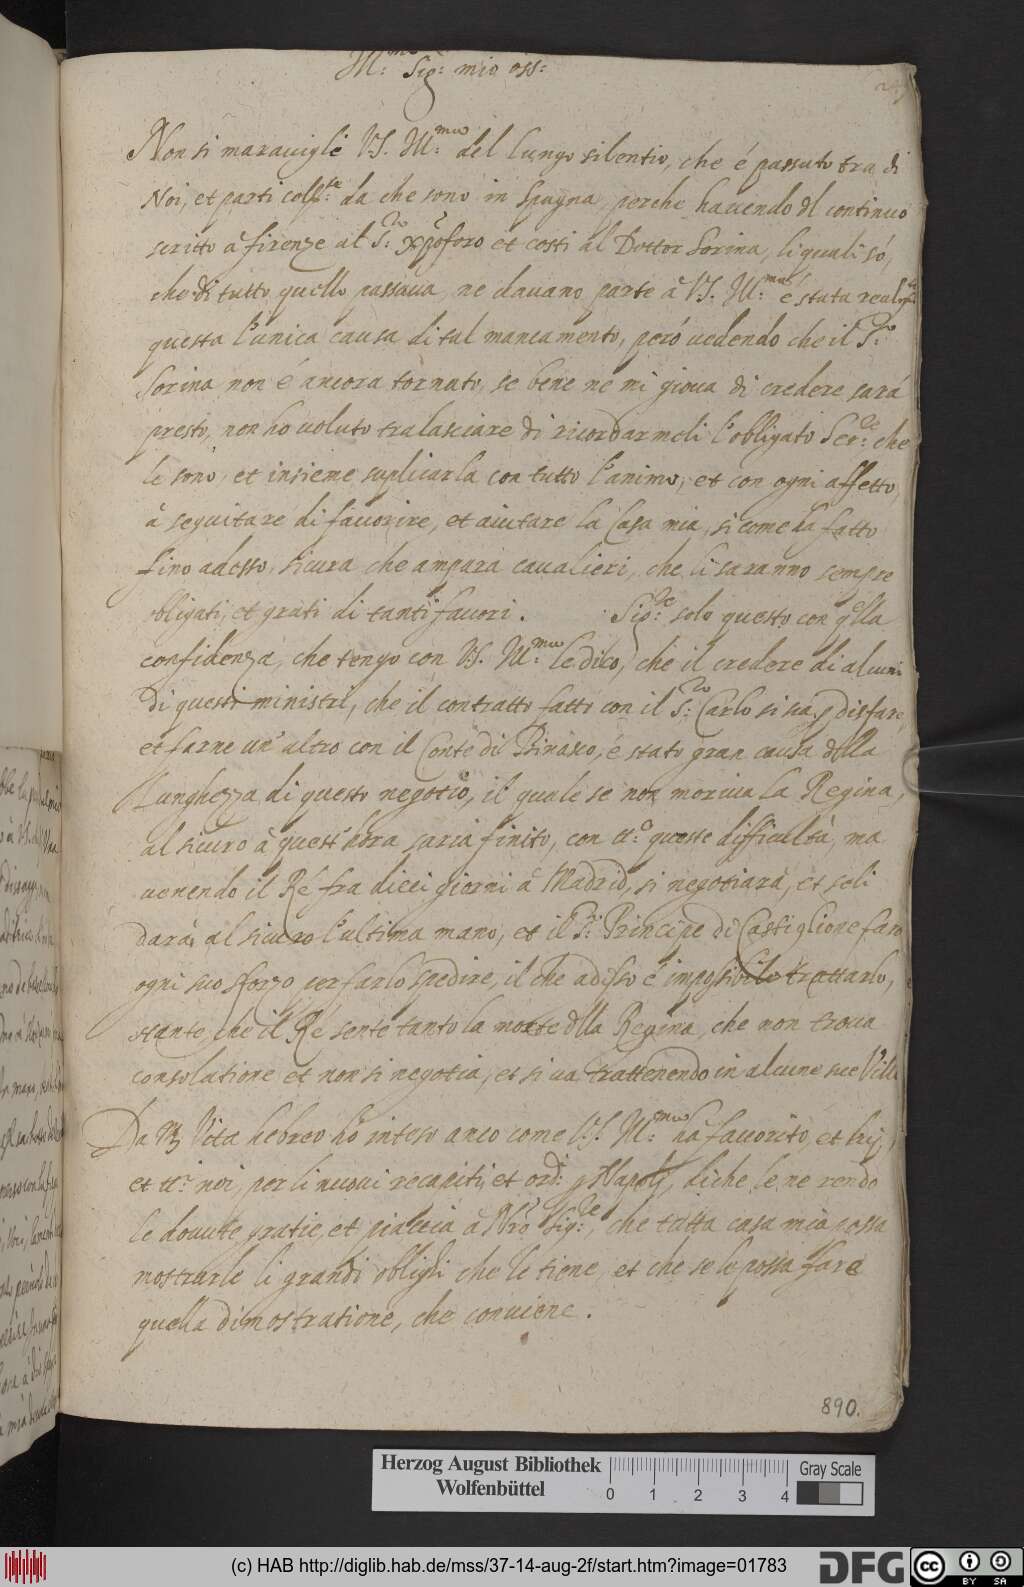 Ill:mo Sig: mio oss:
Non si maravigli V.S. Ill:mo del lungo silentio, che é passato tra di
Noi, et parti col:re da che sono in Spagna, perche havendo dl continuo
scritto à firenze al S:r Xpõforo et costi al Dottor Sorina, li quali só,
che di tutto quello passava, ne davano parte à V.S. Ill:mo é stata real:te
questa l'unica causa di tal mancamento, peró vedendo che il S:r
Sorina non é ancora tornato, se bene ne mi giova di credere sará
presto, non ho voluto tralasciare di ricordarmeli l'obligato Ser:re che
le sono, et insieme suplicarla con tutto l'animo, et con ogni affetto,
à seguitare di favorire, et aiutare la Casa mia, si come ha fatto
fino adesso, sicura che ampara cavalieri, che li saranno sempre
obligati, et grati di tanti favori. Sig:re solo questo con qlla
confidenza, che tengo con V.S. Ill:mo le dico, che il credere di alcuni
di questi ministri, che il contratto fatto con il S:r Carlo si sia p disfare,
et farne un' altro con il Conte di Binasco, é stato gran causa dlla
lunghezza di questo negotio, il quale se non moriva la Regina,
al sicuro à quest' hora saria finito, con tt:e queste difficultà, ma
venendo il Ré fra dieci giorni à Madrid, si negotiarà, et seli
darà al sicuro l'ultima mano, et il S:r Principe di Castiglione fara
ogni suo sforzo per farlo spedire, il che adesso é impossibile trattarlo,
stante, che il Ré sente tanto la morte dlla Regina, che non trova
consolatione et non si negotia, et si va trattenendo in alcune sue Ville
Da Vita hebreo hò inteso anco come V.S. Ill:mo hà favorito, et
et tt:i noi, per li nuovi recapiti, et ord: p Napoli, di che le ne rendo
le dovute gratie, et piaccia à Nro Sig:re, che tutta casa mia possa
mostrarle li grandi obligi che le tiene, et che se le possa fare
quella dimostratione, che conviene.
890.
Herzog August Bibliothek
Wolfenbüttel
0 1 2 3 4
Gray Scale
(c) HAB http://diglib.hab.de/mss/37-14-aug-2f/start.htm?image=01783
DFG
cc BY SA